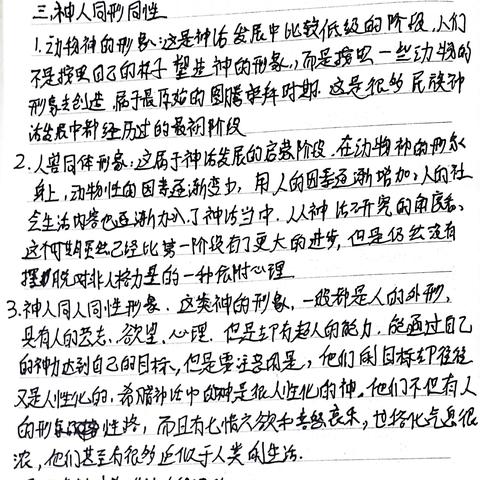 三.神人同形同性
1.动物神的形象:这是神话发展中比较低级的阶段,人们
不是按照自己的样子塑造神的形象,而是按照一些动物的
形象去创造,属于最原始的图腾崇拜时期.这是很多民族神
话发展中都经历过的最初阶段
2.人兽同体形象:这属于神话发展的启蒙阶段.在动物神的形象
身上,动物性的因素逐渐变少,用人的因素逐渐增加,人的社
会生活内容也逐渐加入了神话当中.从神话研究的角度看,
这个时期虽然已经比第一阶段有了更大的进步,但是仍然没有
摆脱对非人格力量的一种依附心理
3.神人同人同性形象.这类神的形象,一般都是人的外形,
具有人的姿态、欲望、心理.但是却有超人的能力,能通过自己
的神力达到自己的目标,但是要注意的是,他们的目标却往往
又是人性化的,希腊神话中的神是很人性化的神.他们不但有人
的形象性格,而且有七情六欲和喜怒哀乐,世俗化气息很
浓,他们甚至有很多近似于人类的生活.